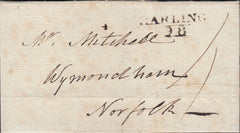 HARLING
18
Mr. Mitchell
Wymondham
Norfolk